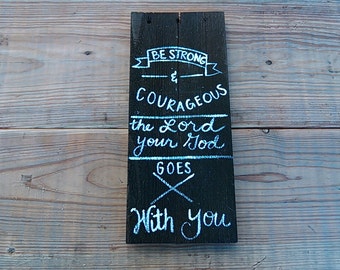 BE STRONG
&
COURAGEOUS
the Lord
your God
GOES
With You